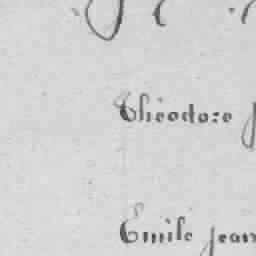 Théodore
Emile jean